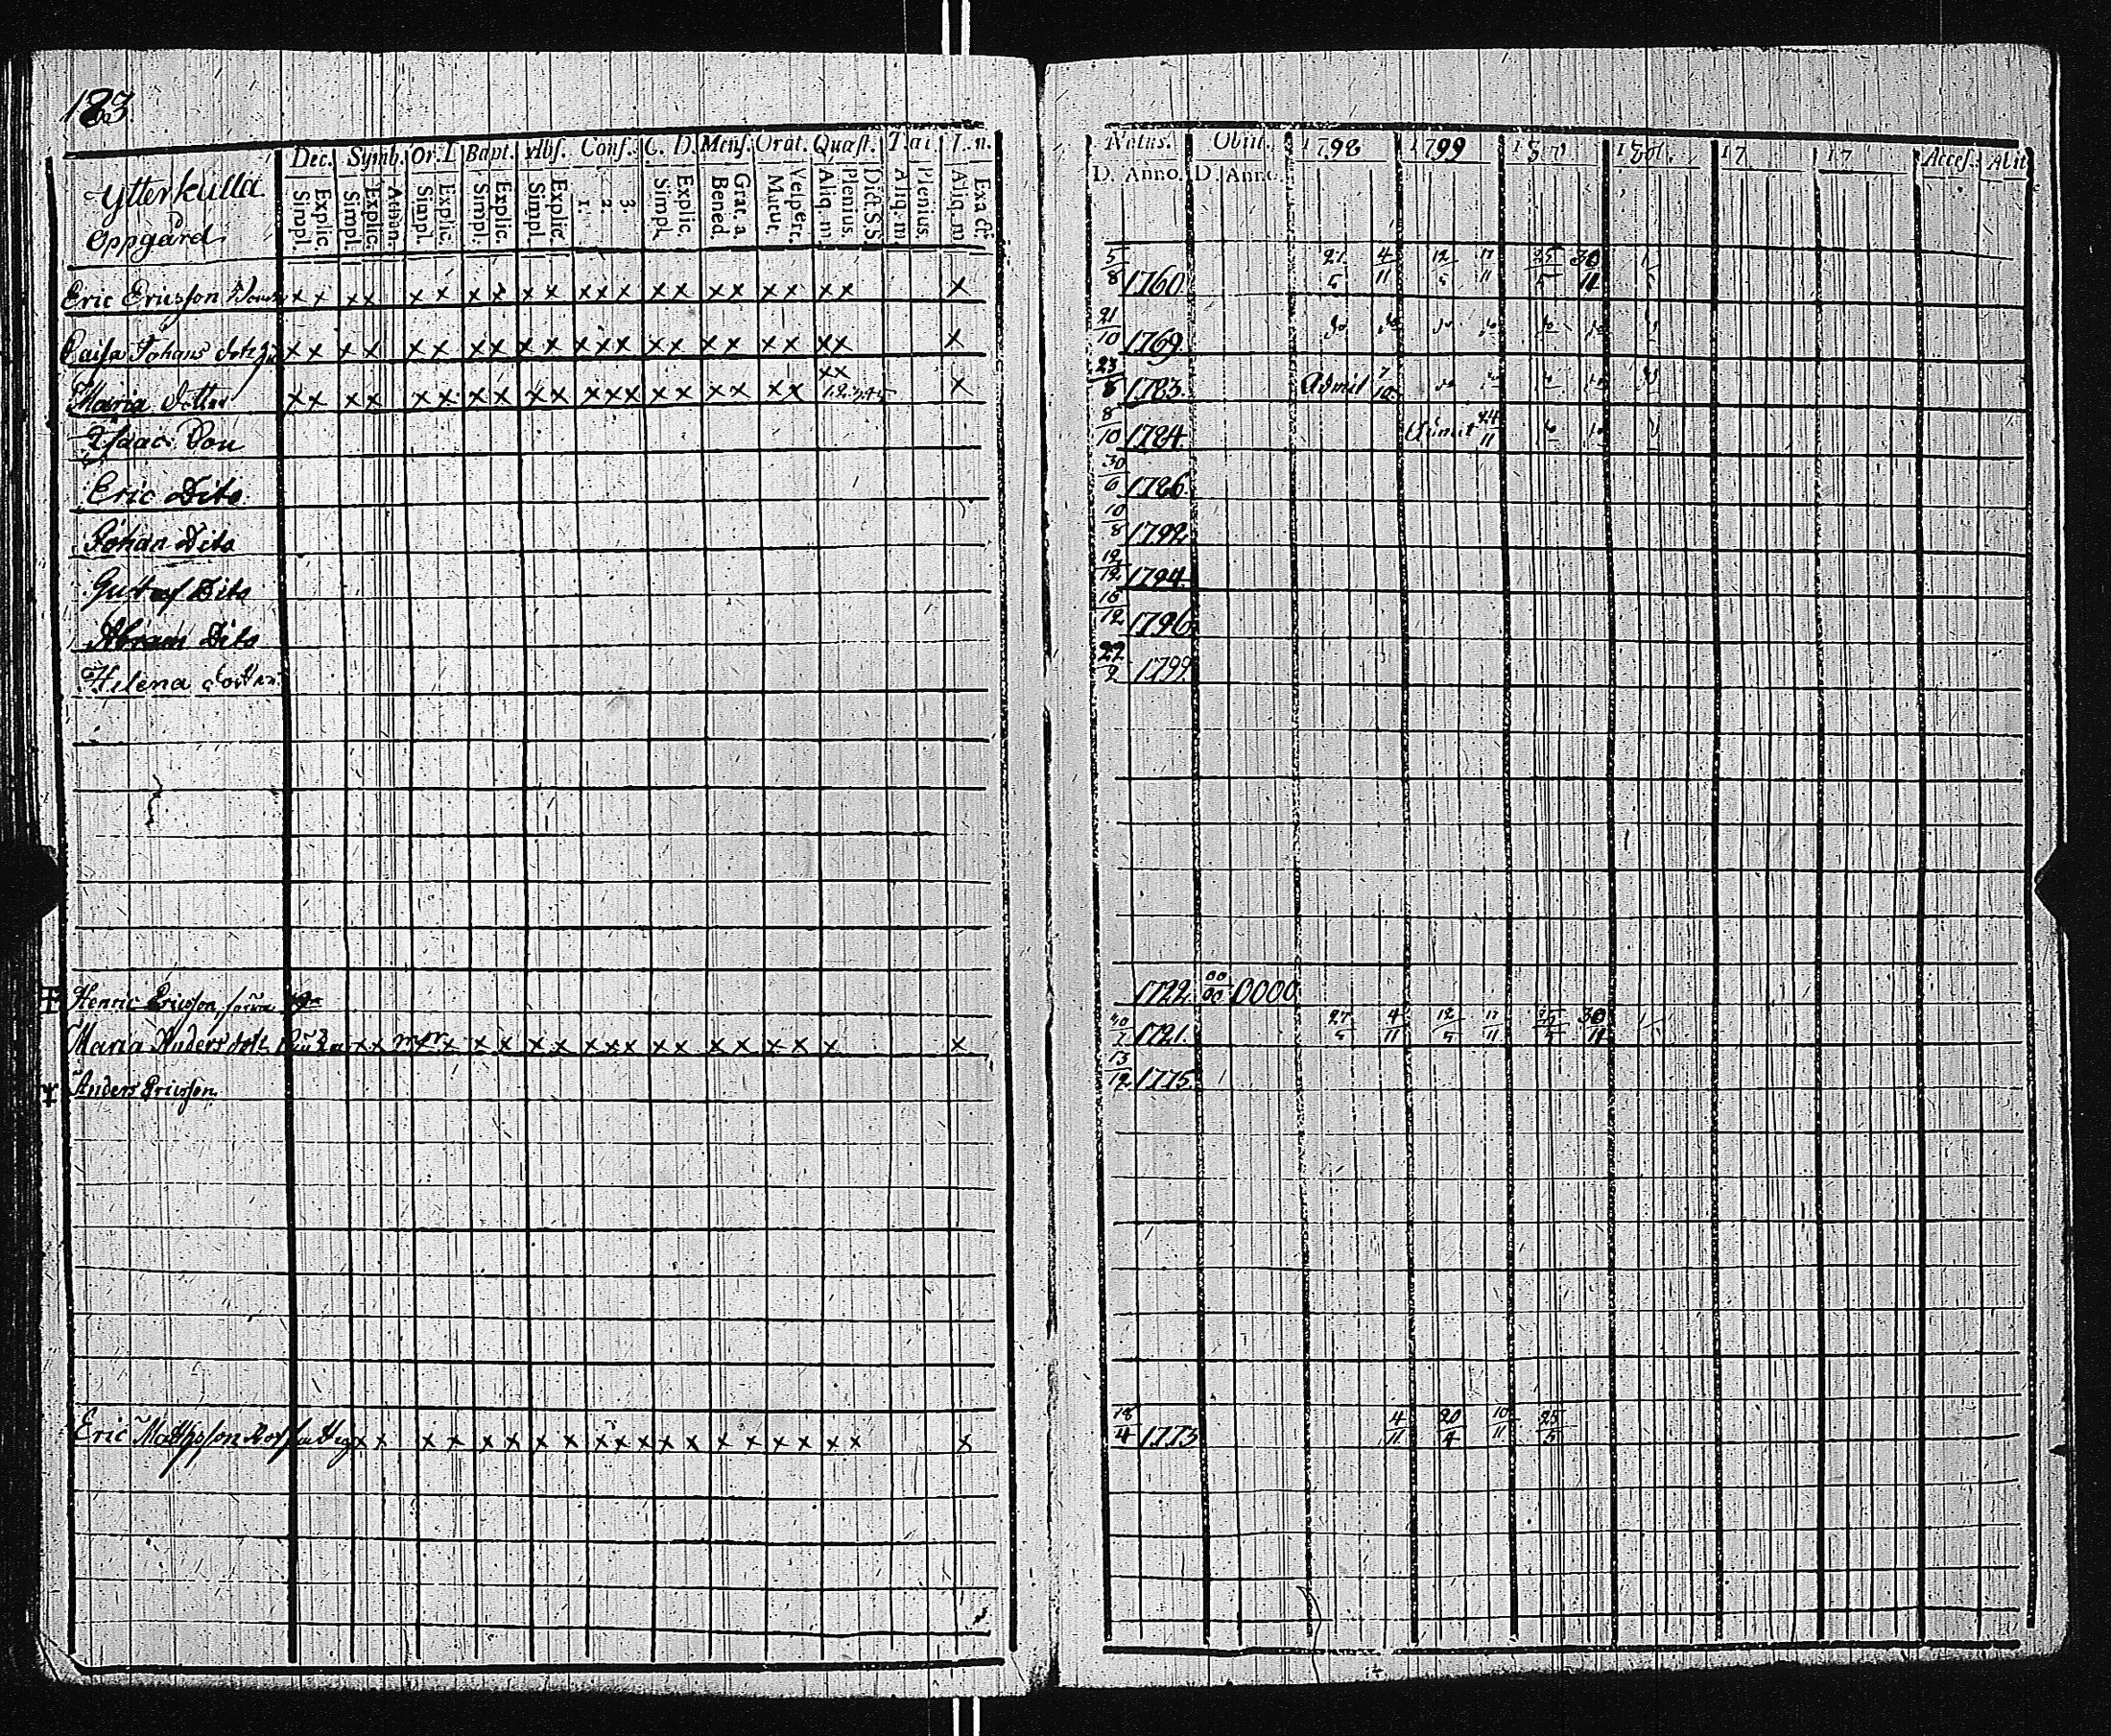 183
Dec. Symb. Or. D Bapt. Abs. Conf. C. D. Mens. Orat. Quæst. T.ai I.n. Natus. Obiit. 1798 1799 1801 17 17 Acces. Abit
Ytterkulla
Oppgård
Simpl. Explic. Simpl. Explic. Simpl. Explic. Simpl. Explic. Simpl. Explic. 1. 2. 3. Simpl. Explic. Bened. Grat. a. Matut. Vespert. Aliq.m Plenius. Dict.S.S Aliq.m Plenius. Aliq.m Exacte D. Anno. D. Anno.
Eric Ericsson x x x x x x x x x x x x x x x x x x x x x x 5/8 1760 27/5 4/11 12/5 11/11 25/5 30/11
Caisa Johans dotr x x x x x x x x x x x x x x x x x x x x x x 21/10 1769 do do do do do do
Maria dotter x x x x x x x x x x x x x x x x x x x x x x x 1.2.3.4.5 23/8 1783. Admit 7/10 do do do do
Isaac Son 8/10 1784 Admit 24/11 do do
Eric Dito 30/6 1786
Johan Dito 10/8 1792
Gustaf Dito 12/12 1794
Abram Dito 16/12 1796
Helena dotter 22/2 1799
Henric Ericsson 1722 00/00 0000
Maria Anders dotr x x x x x x x x x x x x x x x x x 1721. 27/5 4/11 12/5 11/11 25/5 30/11
Anders Ericsson 13/12 1775
Eric Mathsson x x x x x x x x x x x x x x x x x x x x x x 18/4 1773 4/11 20/4 10/11 25/5